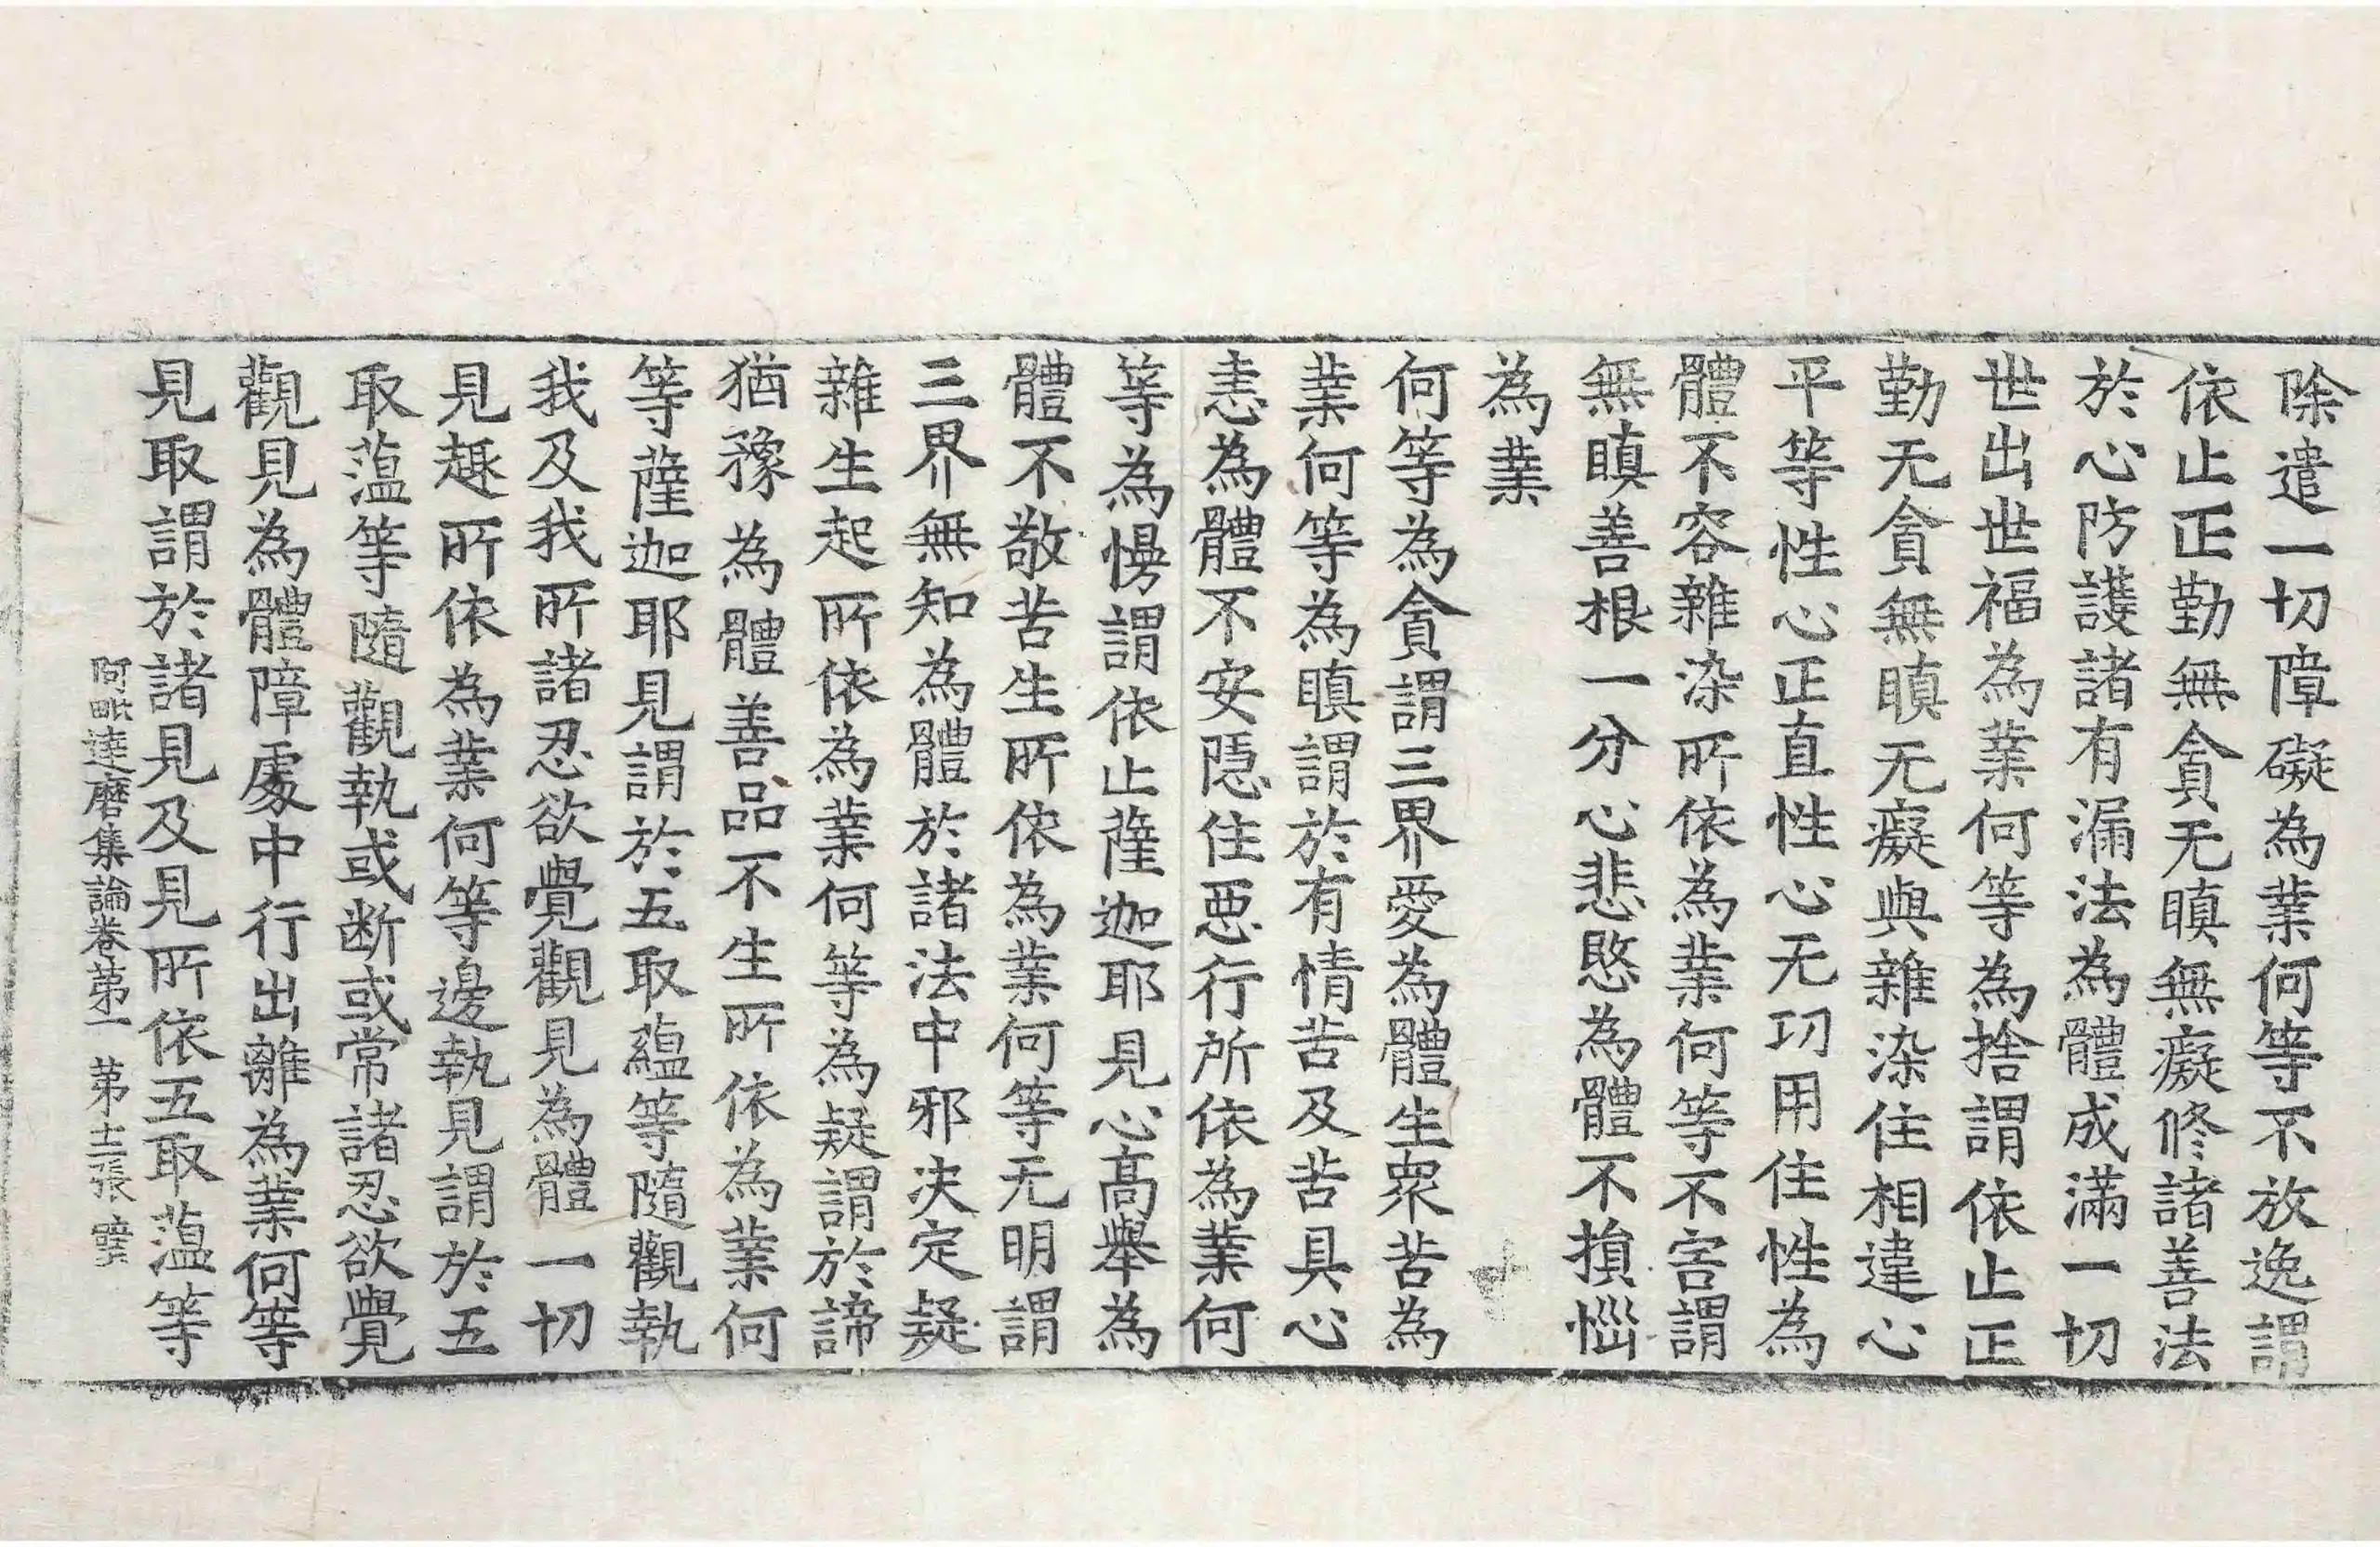 除遣一切障礙為業何等不放逸謂
依止正勤無貪无瞋無癡修諸善法
於心防護諸有漏法為體成滿一切
世出世福為業何等為捨謂依止正
勤无貪無瞋无癡與雜染住相違心
平等性心正直性心无功用住性為
體不容雜染所依為業何等不害謂
無瞋善根一分心悲愍為體不損惱
為業
何等為貪謂三界愛為體生衆苦為
業何等為瞋謂於有情苦及苦具心
恚為體不安隱住惡行所依為業何
等為慢謂依止薩迦耶見心高舉為
體不敬苦生所依為業何等无明謂
三界無知為體於諸法中邪決定疑
雜生起所依為業何等為疑謂於諦
猶豫為體善品不生所依為業何
等薩迦耶見謂於五取蘊等隨觀執
我及我所諸忍欲覺觀見為體一切
見趣所依為業何等邊執見謂於五
取薀等隨觀執或断或常諸忍欲覺
觀見為體障處中行出離為業何等
見取謂於諸見及見所依五取薀等
阿毗達磨集論卷第一 第十二張 璧